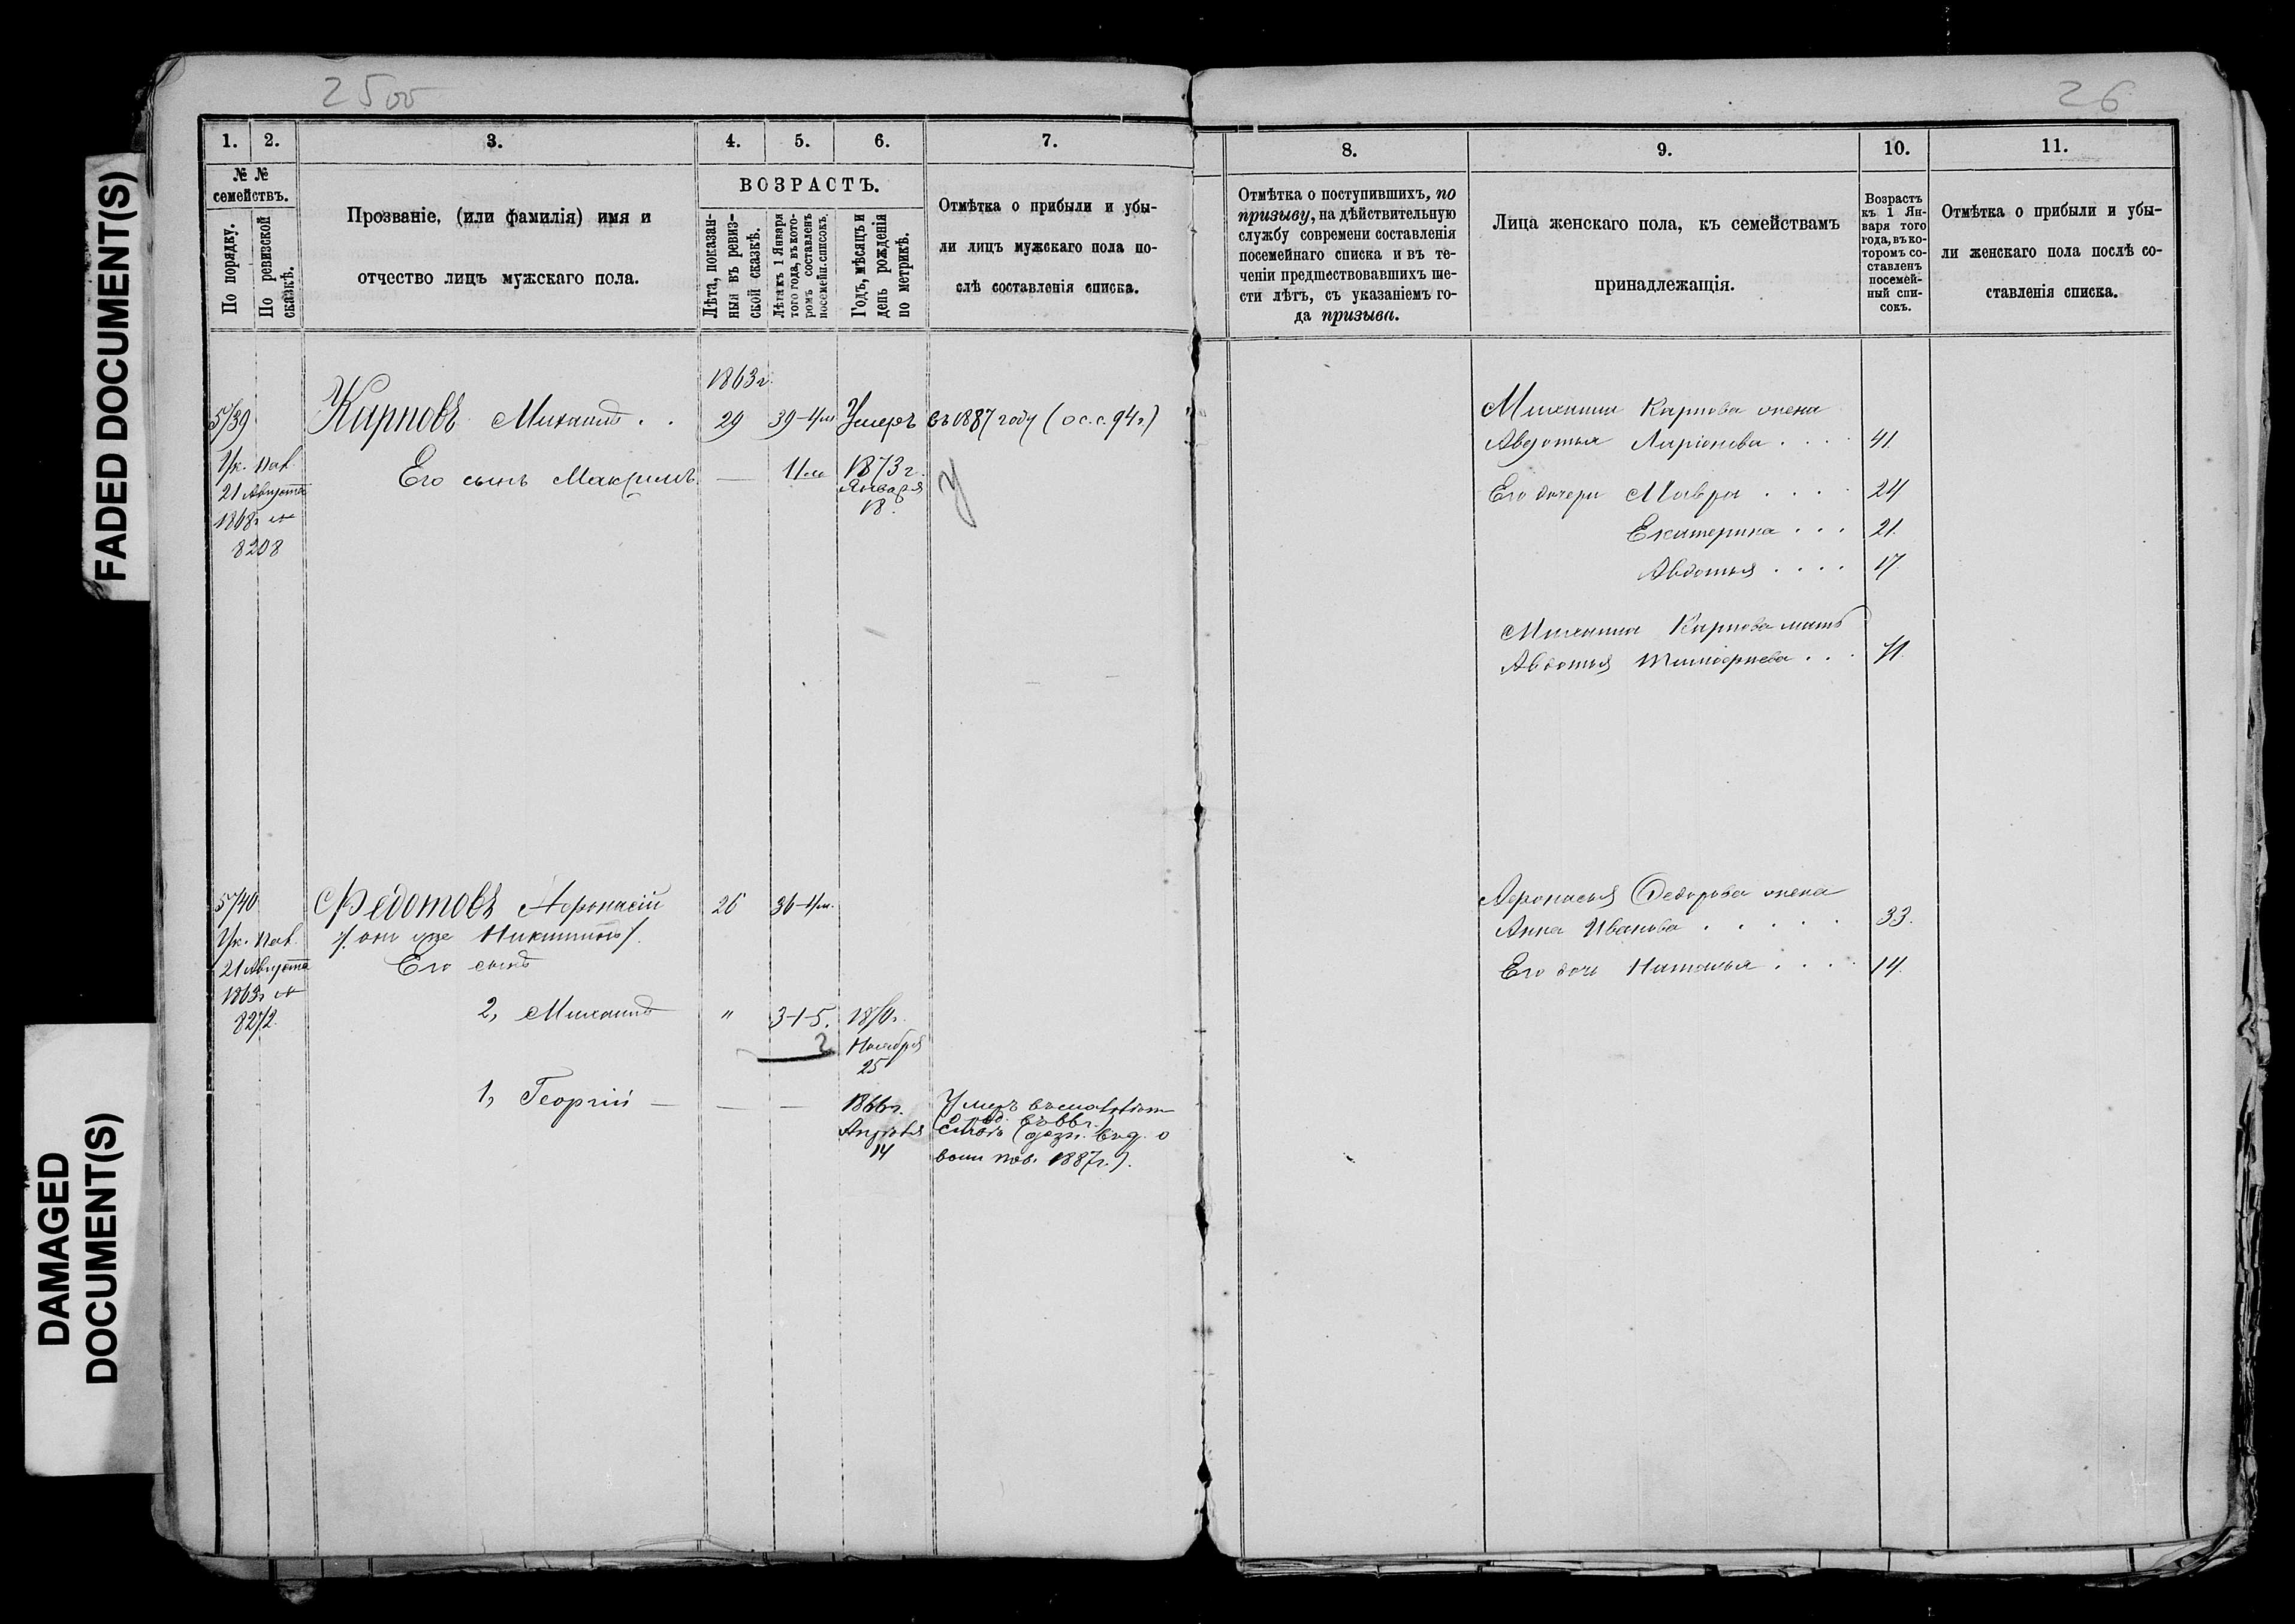 FADED DOCUMENT(S)
DAMAGED
DOCUMENT(S)
25об
1. 2. 3. 4. 5. 6. 7.
№ №
семействъ.
По порядку.
По ревизской
сказкѣ.
Прозваніе, (или фамилія) имя и
отчество лицъ мужскаго пола.
ВОЗРАСТЪ.
Лѣта, показан-
ныя въ ревиз-
ской сказкѣ.
Лѣта къ 1 Января
того года, въ кото-
ромъ составленъ
посемейн. списокъ.
Годъ, мѣсяцъ и
день рожденія
по метрикѣ.
Отмѣтка о прибыли и убы-
ли лицъ мужскаго пола по-
слѣ составленія списка.
1863 г.
5/39 Карповъ Михаилъ . . 29 39 Умеръ въ 1887 году (ос. с. 94 г)
Ук. Пал. Его сынъ Максимъ — 11 1873 г.
21 Августа Января
1868 г № 18.
8208
у
5/40 Федотовъ Афонасій 26 36
Ук. Пал. /: онъ же Никитинъ :/
21 Августа Его сынъ
1863 г №
8272.
2, Михаилъ " 3-1-5. 1870 г.
2 Ноября
25
1, Георгій — — — 1866 г. Умеръ
Апрѣля
14 воин. пов. 1887 г.).
26
8. 9. 10. 11.
Отмѣтка о поступившихъ, по
призыву, на дѣйствительную
службу современи составленія
посемейнаго списка и въ те-
ченіи предшествовавшихъ ше-
сти лѣтъ, съ указаніемъ го-
да призыва.
Лица женскаго пола, къ семействамъ
принадлежащія.
Возрастъ
къ 1 Ян-
варя того
года, въ ко-
торомъ со-
ставленъ
посемей-
ный спи-
сокъ.
Отмѣтка о прибыли и убы-
ли женскаго пола послѣ со-
ставленія списка.
Михаила Карпова жена
Авдотья Ларіонова . . . . 41
Его дочери Мавра . . . . 24
Екатерина . . . 21.
Авдотья . . . . 17
Михаила Карпова мать
Авдотья Тимофеева . . . 71.
Афонасья Федорова жена
Анна Иванова . . . . . 33.
Его дочь Наталья . . . . 14.